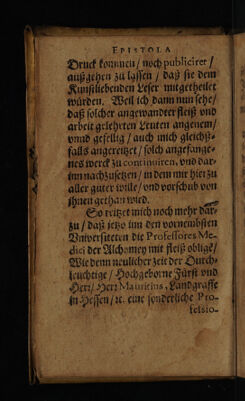 EPISTOLA
Druck kommen / noch publiciret /
außgehen zu lassen / daß sie dem
Kunstliebenden Leser mitgetheilet
würden. Weil ich dann nun sehe /
daß solcher angewandter fleiß vnd
arbeit gelehrten Leuten angenem /
vnnd gefellig / auch mich gleichßfalls
angereitzet / solch angefangenes
werck zu continuiren, vnd darinn
nachzusetzen / in dem mir hiezu
aller guter wille / vnd vorschub von
ihnen gethan wird.
So reitzet mich noch mehr darzu /
daß jetzo inn den vornembsten
Vniversiteten die Professores Medici
der Alchamey mit fleiß oblige /
Wie denn newlicher zeit der Durchleuchtige /
Hochgeborne Fürst vnd
Herr / Herr Mauritius, Landgraffe
in Hessen / ꝛc. eine sonderliche Profeſsio-